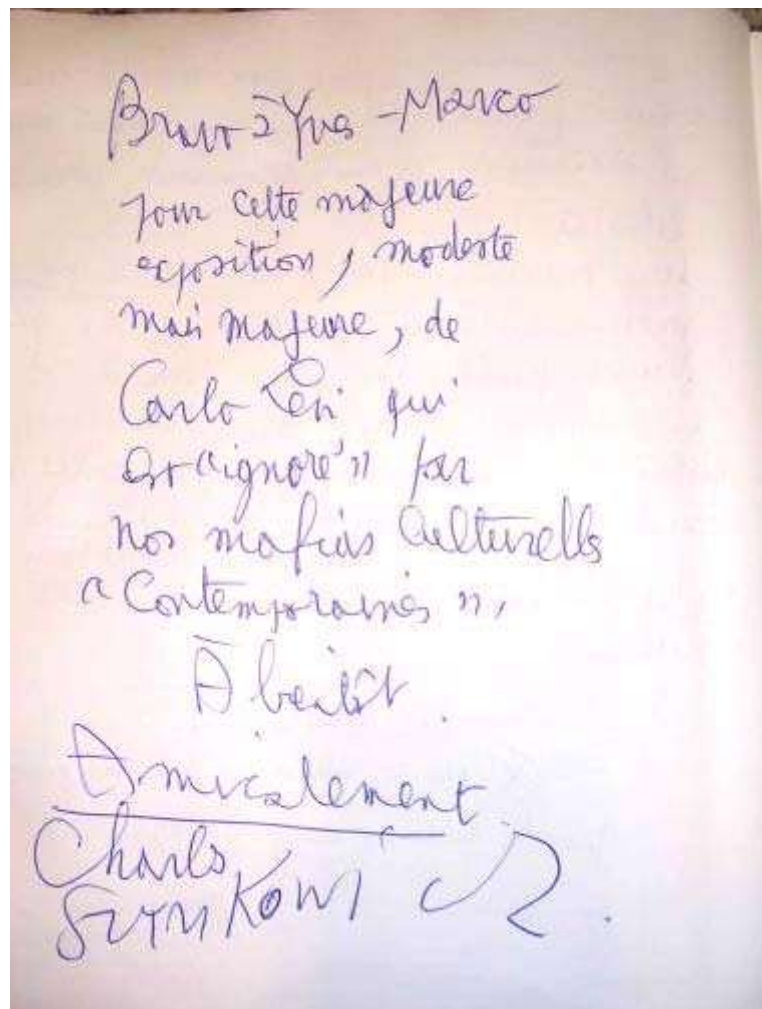 Bravo à Yves-Marco
pour cette majeure
exposition, modeste
mais majeure, de
Carlo Levi qui
est "ignoré" par
nos mafias culturelles
"Contemporaines",
À bientôt.
Amicalement
Charles
SZYMKOWICZ.